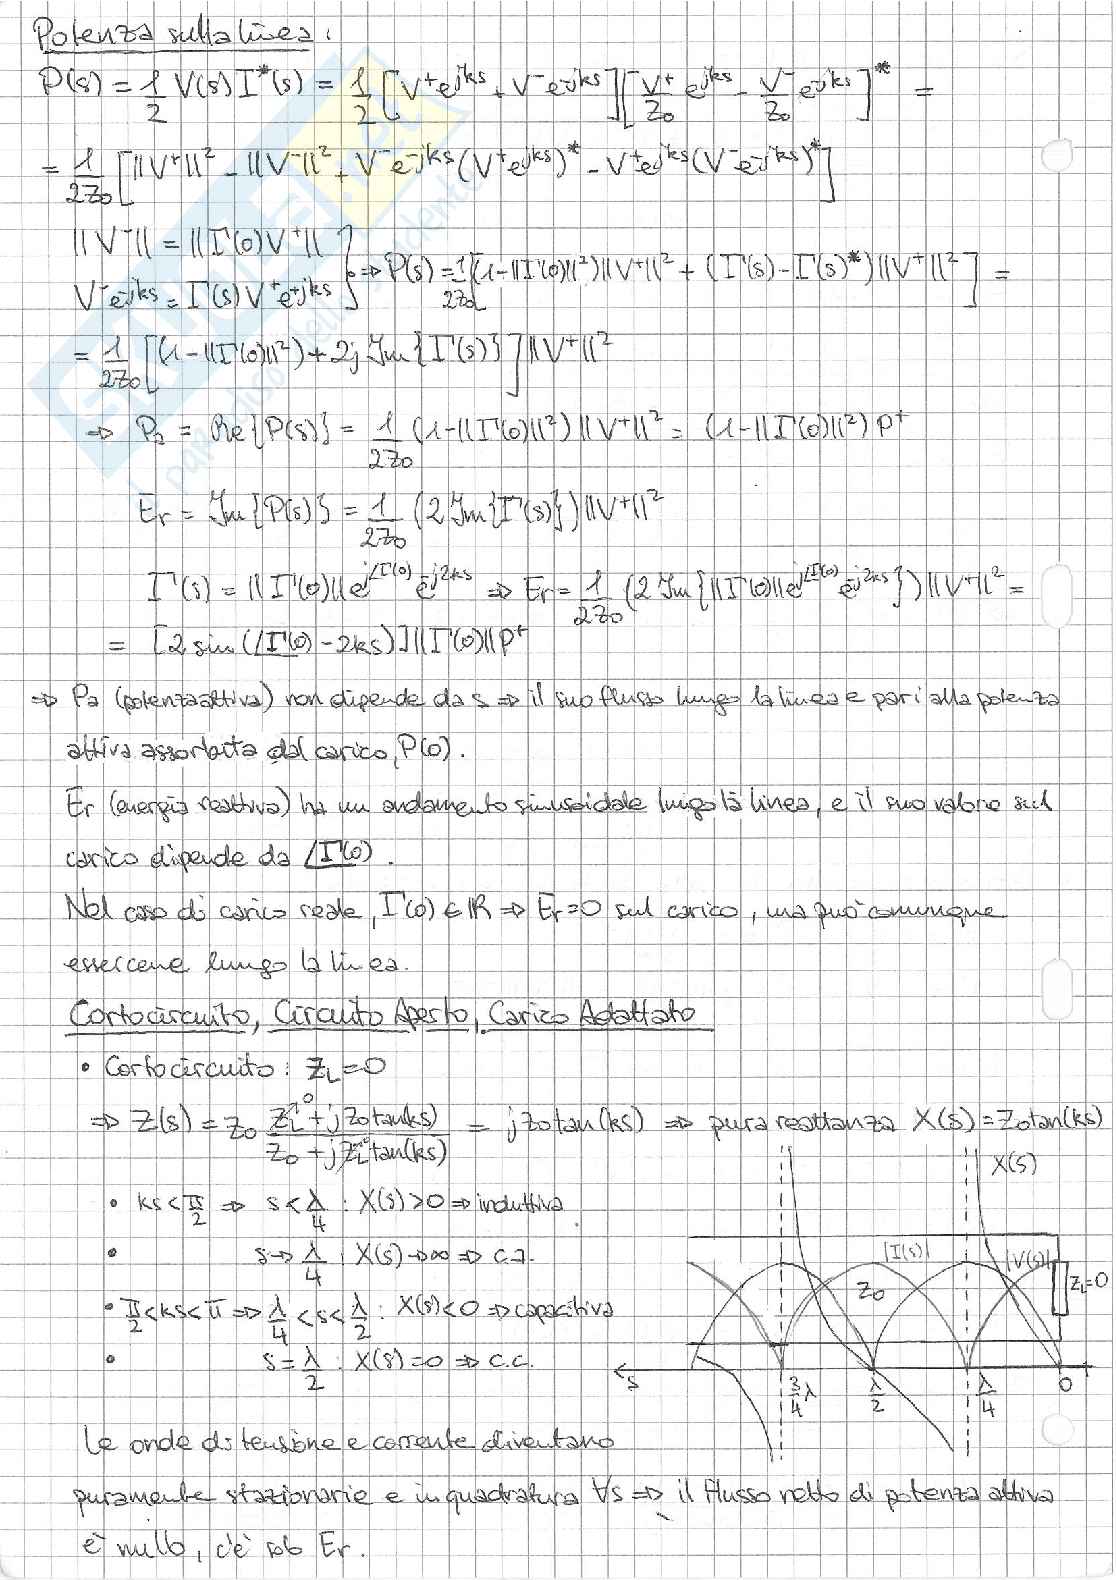 Potenza sulla linea:
P(s) = 1/2 V(s) I*(s) = 1/2 [V⁺e^{jks} + V⁻e^{-jks}][V⁺/Z₀ e^{jks} - V⁻/Z₀ e^{-jks}]* =
= 1/2Z₀ [||V⁺||² - ||V⁻||² + V⁻e^{-jks}(V⁺e^{jks})* - V⁺e^{jks}(V⁻e^{-jks})*]
||V⁻|| = ||Γ(0)V⁺||
V⁻e^{-jks} = Γ(s)V⁺e^{+jks} } ⇒ P(s) = 1/2Z₀ [(1-||Γ(0)||²)||V⁺||² + (Γ(s)-Γ(s)*)||V⁺||²] =
= 1/2Z₀ [(1-||Γ(0)||²) + 2j Im{Γ(s)}] ||V⁺||²
⇒ Pa = Re{P(s)} = 1/2Z₀ (1-||Γ(0)||²) ||V⁺||² = (1-||Γ(0)||²) P⁺
Er = Im{P(s)} = 1/2Z₀ (2 Im{Γ(s)}) ||V⁺||²
Γ(s) = ||Γ(0)|| e^{j∠Γ(0)} e^{-j2ks} ⇒ Er = 1/2Z₀ (2 Im{||Γ(0)|| e^{j∠Γ(0)} e^{-j2ks}}) ||V⁺||² =
= [2 sin(∠Γ(0) - 2ks)] ||Γ(0)|| P⁺
⇒ Pa (potenza attiva) non dipende da s ⇒ il suo flusso lungo la linea e pari alla potenza
attiva assorbita dal carico, P(0).
Er (energia reattiva) ha un andamento sinusoidale lungo la linea, e il suo valore sul
carico dipende da ∠Γ(0).
Nel caso di carico reale, Γ(0) ∈ ℝ ⇒ Er=0 sul carico, ma può comunque
essercene lungo la linea.
Cortocircuito, Circuito Aperto, Carico Adattato
• Cortocircuito: Z_L=0
⇒ Z(s) = Z₀ (Z_L→0 + jZ₀tan(ks))/(Z₀ + jZ_L→0 tan(ks)) = jZ₀tan(ks) ⇒ pura reattanza X(s)=Z₀tan(ks)
• ks<π/2 ⇒ s<λ/4 : X(s)>0 ⇒ induttiva
• s→λ/4 : X(s)→∞ ⇒ c.a.
• π/2<ks<π ⇒ λ/4<s<λ/2 : X(s)<0 ⇒ capacitiva
• s=λ/2 : X(s)=0 ⇒ c.c.
X(s)
|I(s)| |V(s)|
Z₀ Z_L=0
s 3/4 λ λ/2 λ/4 0
Le onde di tensione e corrente diventano
puramente stazionarie e in quadratura ∀s ⇒ il flusso netto di potenza attiva
è nullo, c'è solo Er.